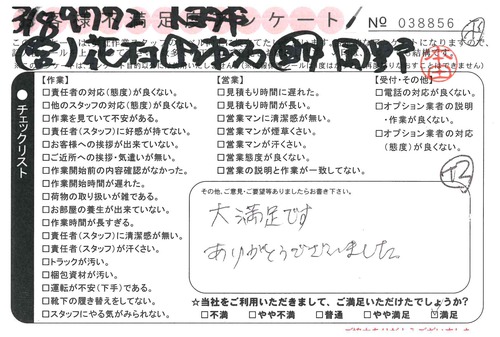 アンケート
No 038856
【作業】
□責任者の対応(態度)が良くない。
□他のスタッフの対応(態度)が良くない。
□作業を見ていて不安がある。
□責任者(スタッフ)に好感が持てない。
□お客様への挨拶が出来ていない。
□ご近所への挨拶・気遣いが無い。
□作業開始前の内容確認がなかった。
□作業開始時間が遅れた。
□荷物の取り扱いが雑である。
□お部屋の養生が出来ていない。
□作業時間が長すぎる。
□責任者(スタッフ)に清潔感が無い。
□責任者(スタッフ)が汗くさい。
□トラックが汚い。
□梱包資材が汚い。
□運転が不安(下手)である。
□靴下の履き替えをしてない。
□スタッフにやる気がみられない。
【営業】
□見積もり時間に遅れた。
□見積もり時間が長い。
□営業マンに清潔感が無い。
□営業マンが煙草くさい。
□営業マンが汗くさい。
□営業態度が良くない。
□営業の説明と作業が一致してない。
【受付・その他】
□電話の対応が良くない。
□オプション業者の説明
・作業が良くない。
□オプション業者の対応
(態度)が良くない。
チェックリスト
その他、ご意見・ご要望等ありましたらお書き下さい。
大満足です
ありがとうございました
☆当社をご利用いただきまして、ご満足いただけたでしょうか?
□不満 □やや不満 □普通 □やや満足 ☑満足